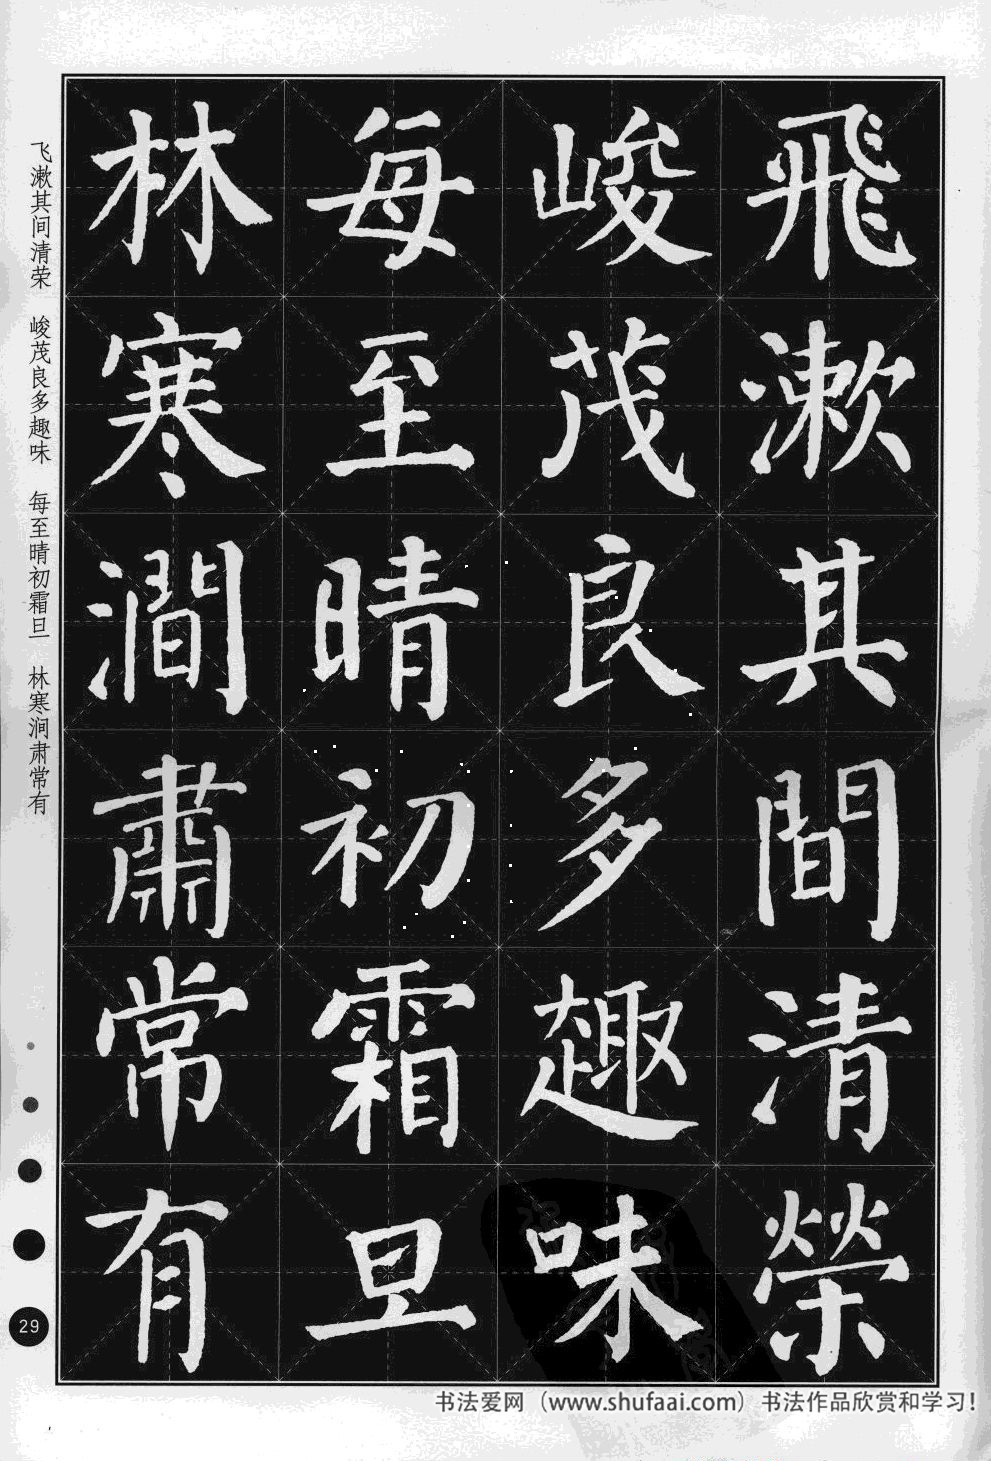 飛漱其間清榮
峻茂良多趣味
每至晴初霜旦
林寒澗肅常有
飞漱其间清荣 峻茂良多趣味 每至晴初霜旦 林寒涧肃常有
29
书法爱网（www.shufaai.com）书法作品欣赏和学习！